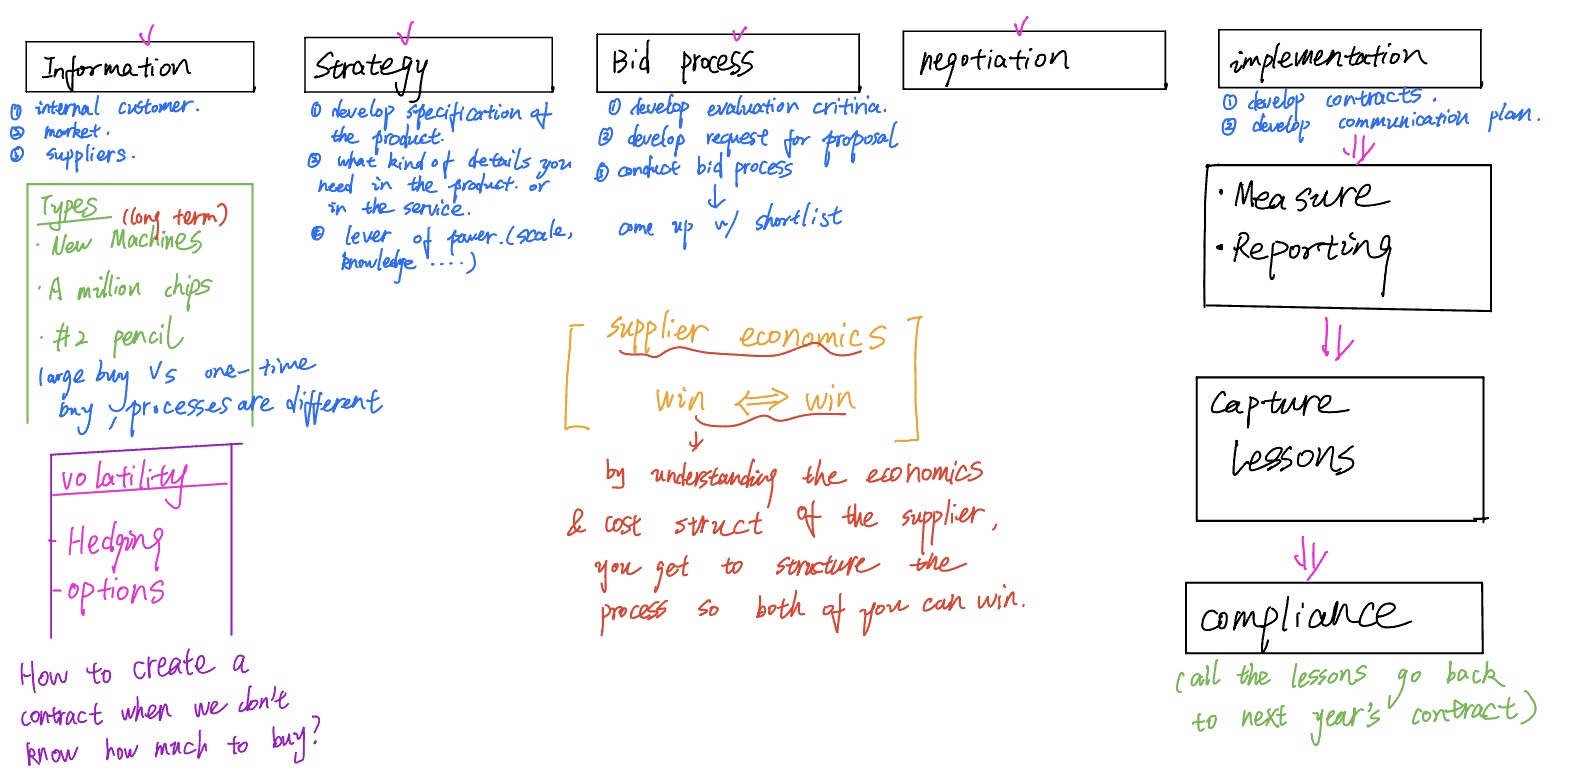 Information
① internal customer.
② market.
③ suppliers.
Types (long term)
· New Machines
· A million chips
· #2 pencil
large buy vs one-time
buy, processes are different
volatility
- Hedging
- options
How to create a
contract when we don't
know how much to buy?
Strategy
① develop specification of
the product.
② what kind of details you
need in the product. or
in the service.
③ lever of power. (scale,
knowledge ....)
Bid process
① develop evaluation critiria.
② develop request for proposal
③ conduct bid process
↓
come up w/ shortlist
supplier economics
win ⇔ win
↓
by understanding the economics
& cost struct of the supplier,
you get to structure the
process so both of you can win.
negotiation
implementation
① develop contracts.
② develop communication plan.
· Measure
· Reporting
Capture
Lessons
compliance
(all the lessons go back
to next year's contract)